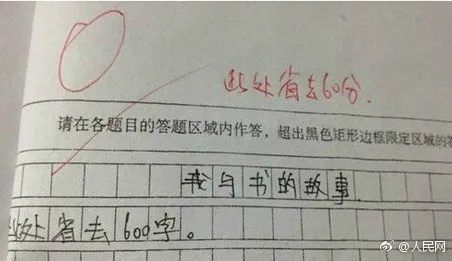 此处省去60分.
请在各题目的答题区域内作答，超出黑色矩形边框限定区域的答
我与书的故事.
此处省去600字。
@人民网